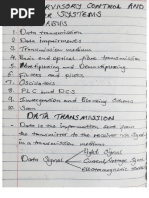 SUPERVISORY CONTROL AND
SYSTEMS
1. Data transmission
2. Data impairments
3. Transmission mediums
4. Basic and optical fibre transmission
5. Multiplexing and Demultiplexing
6. Filters and pilots
7. Oscillators
8. PLC and DCS
9. and Systems
10. Scan
DATA TRANSMISSION
- Data is the information sent from
the transmitter to the receiver via
in a transmission medium.
Light signal
Data Signal
Current/voltage
electromagnetic